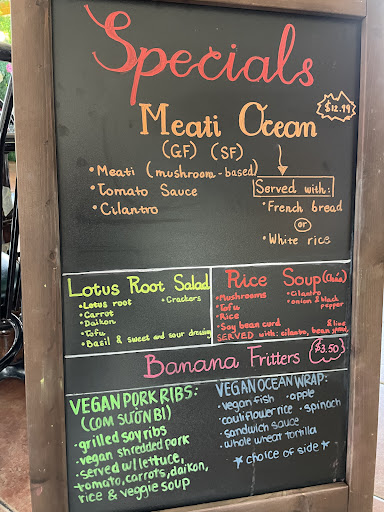 Specials
$12.99
Meati Ocean
(GF) (SF)
• Meati (mushroom-based)
• Tomato Sauce
• Cilantro
Served with:
• French bread
or
• White rice
Lotus Root Salad
• Lotus root
• Crackers
• Carrot
• Daikon
• Tofu
• Basil & sweet and sour dressing
Rice Soup (Cháo)
• Mushrooms
• Cilantro
• Tofu
• onion & black pepper
• Rice
• Soy bean curd
SERVED with: cilantro, bean sprout & lime
Banana Fritters
$3.50
VEGAN PORK RIBS:
(COM SUỜN BI)
• grilled soy ribs
• vegan shredded pork
• served w/ lettuce,
tomato, carrots, daikon,
rice & veggie soup
VEGAN OCEAN WRAP:
• vegan fish • apple
• cauliflower rice • spinach
• sandwich sauce
• whole wheat tortilla
* choice of side *